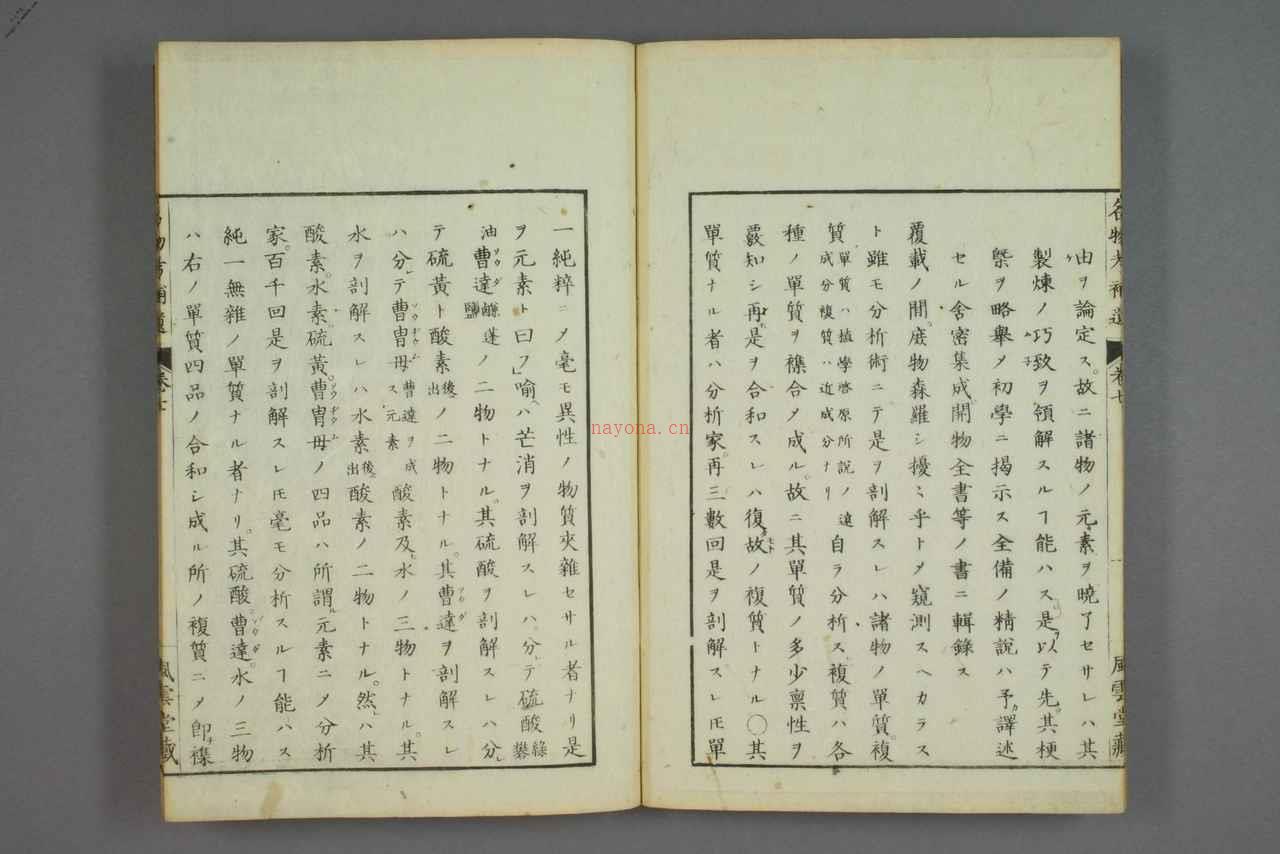 由ヲ論定ス故ニ諸物ノ元素ヲ曉了セサレハ其
製煉ノ巧致ヲ領解スルヿ能ハス是ヲ以テ先其梗
槩ヲ略舉メ初學ニ揭示ス全備ノ精說ハ予譯述
セル舍密集成開物全書等ノ書ニ輯錄ス
覆載ノ間庶物森羅シ擾ミ乎トメ窺測スヘカラス
ト雖モ分析術ニテ是ヲ剖解スレハ諸物ノ單質複
質單質ハ植學啓原所說ノ遠成分複質ハ近成分ナリ自ラ分析ス複質ハ各
種ノ單質ヲ襍合メ成ル故ニ其單質ノ多少稟性ヲ
覈知シ再是ヲ合和スレハ復故ノ複質トナル〇其
單質ナル者ハ分析家再三數回是ヲ剖解スレモ單
名物考補遺 卷七 風雲堂藏
一純粹ニメ毫モ異性ノ物質夾雜セサル者ナリ是
ヲ元素ト曰フ喻ハ芒消ヲ剖解スレハ分テ硫酸綠礬
油曹達鹻蓬鹽ノ二物トナル其硫酸ヲ剖解スレハ分
テ硫黃ト酸素後出ノ二物トナル其曹達ヲ剖解スレ
ハ分テ曹冑母曹達ヲ成ス元素酸素及水ノ三物トナル其
水ヲ剖解スレハ水素後出酸素ノ二物トナル然ハ其
酸素水素硫黃曹冑母ノ四品ハ所謂元素ニメ分析
家百千回是ヲ剖解スレモ毫モ分析スルヿ能ハス
純一無雜ノ單質ナル者ナリ其硫酸曹達水ノ三物
ハ右ノ單質四品ノ合和シ成ル所ノ複質ニメ卽襍
風雲堂藏
nayona.cn